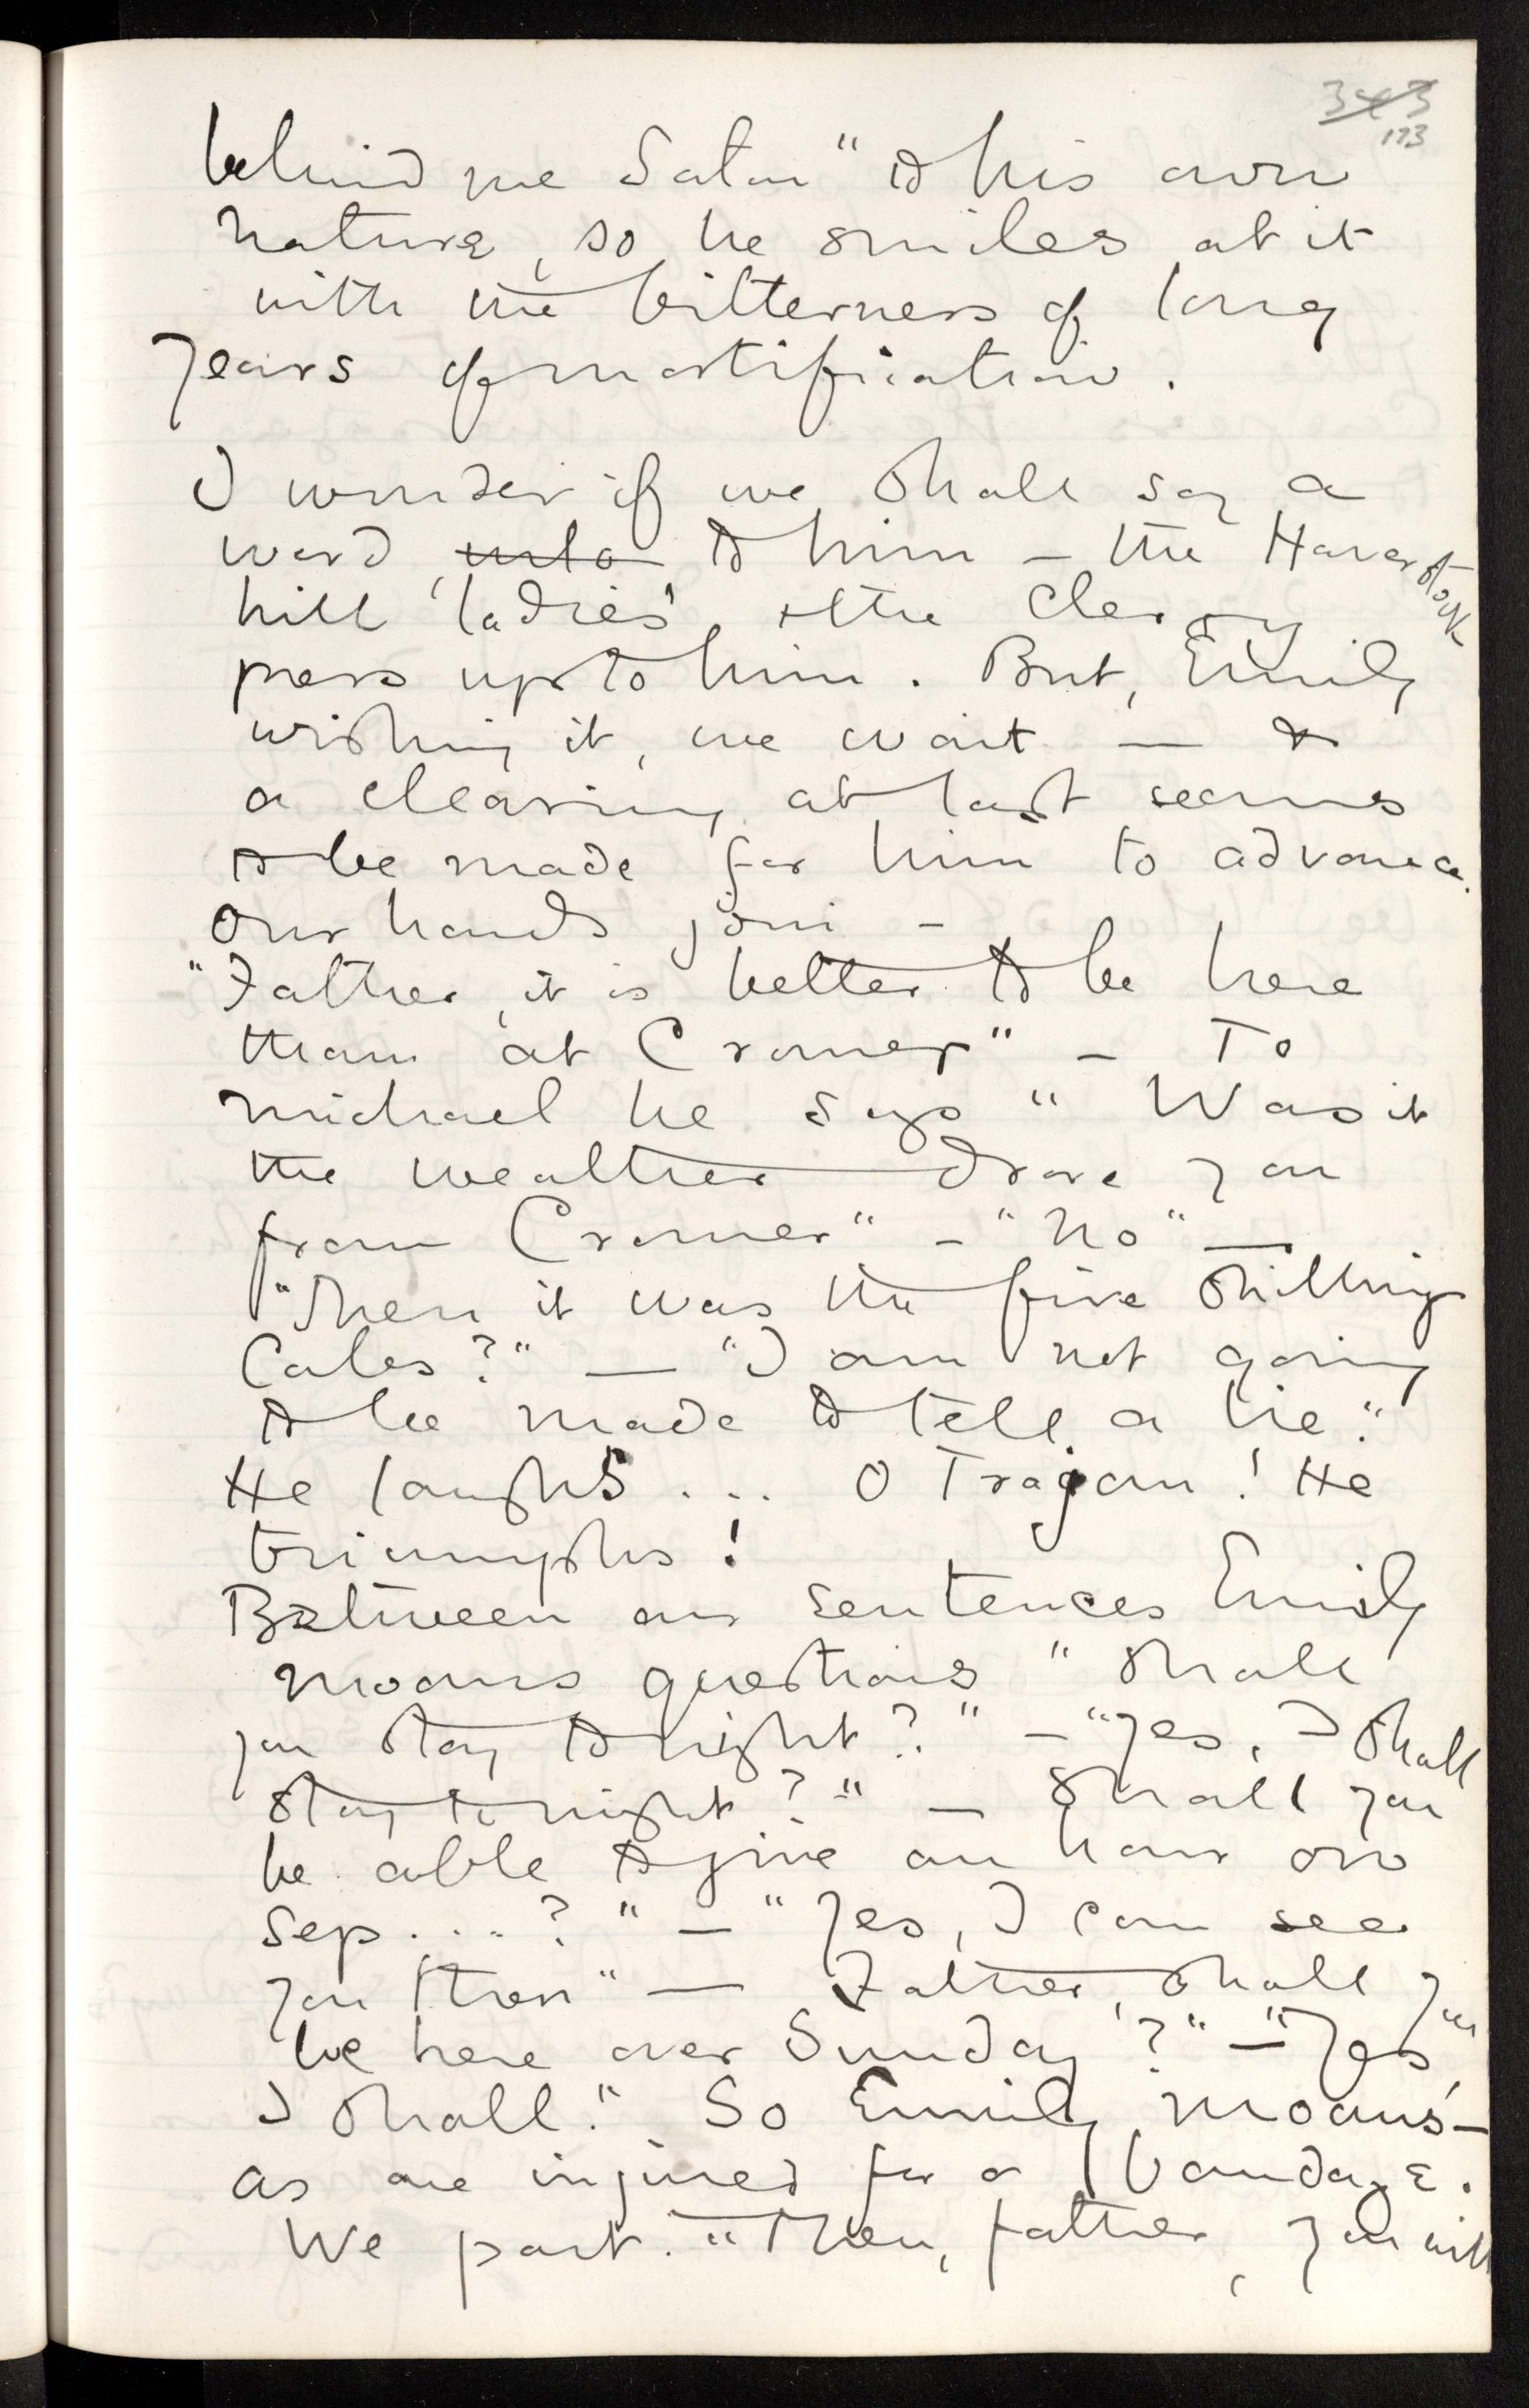 343
173
behind me Satan" to his own
nature, so he smiles at it
with the bitterness of long
years of mortification.
I wonder if we shall say a
word unto to him – the Haverstock
hill 'ladies' & the clergy
press up to him. But, Emily
wishing it, we wait — &
a clearing at last seems
to be made for him to advance.
Our hands join –
"Father, it is better to be here
than at Cromer" – To
Michael he says "Was it
the weather drove you
from Cromer" – "No" —
"Then it was the five shilling
Cabs?" — "I am not going
to be made to tell a lie."
He laughs ... O Trajan! He
triumphs!
Between our sentences Emily
moans questions "Shall
you stay to night?" – "Yes, I shall
stay to night?" – Shall you
be able to give an hour on
Sep...?" – "Yes, I can see
you then" — Father, shall you
be here over Sunday?" – "Yes,
I shall." So Emily moans –
as one injured for a bandage.
We part. "Then, father, you will